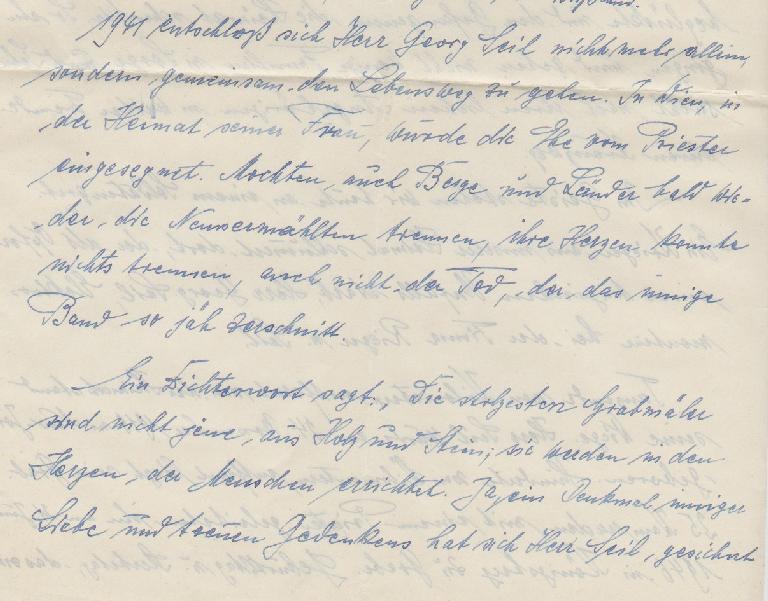 1941 entschloß sich Herr Georg Seil nicht mehr allein,
sondern gemeinsam den Lebensweg zu gehen. In Wien, in
der Heimat seiner Frau, wurde die Ehe vom Priester
eingesegnet. Mochten auch Berge und Länder bald wie-
der die Neuvermählten trennen, ihre Herzen konnte
nichts trennen, auch nicht der Tod, der das innige
Band so jäh zerschnitt.
Ein Dichterwort sagt: „Die stolzesten Grabmäler
sind nicht jene, aus Holz und Stein; sie werden in den
Herzen der Menschen errichtet. Ja, ein Denkmal inniger
Liebe und treuen Gedenkens hat sich Herr Seil, gesichert